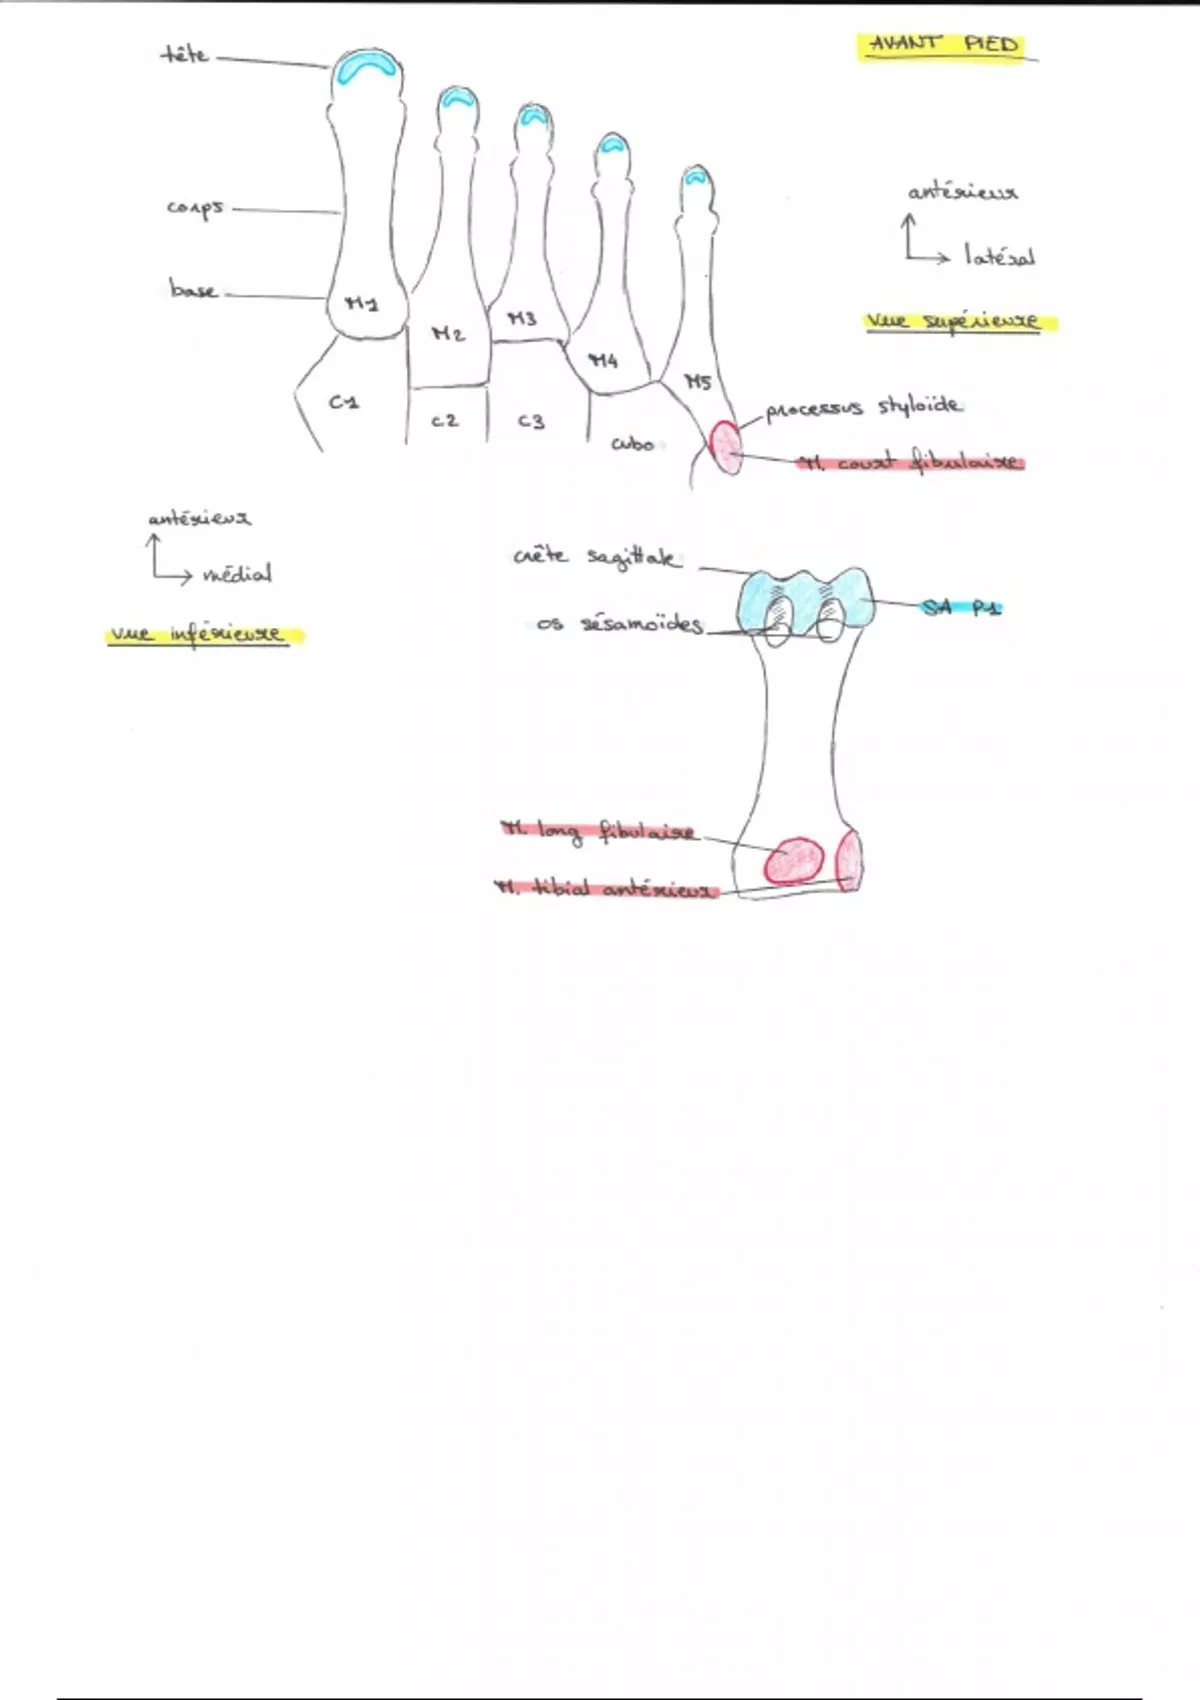 AVANT PIED
tête
corps
base
antérieur
latéral
vue supérieure
M1
M2
M3
M4
M5
C1
C2
C3
cubo
processus styloïde
M. court fibulaire
antérieur
médial
vue inférieure
crête sagittale
os sésamoïdes
SA P1
M. long fibulaire
M. tibial antérieur